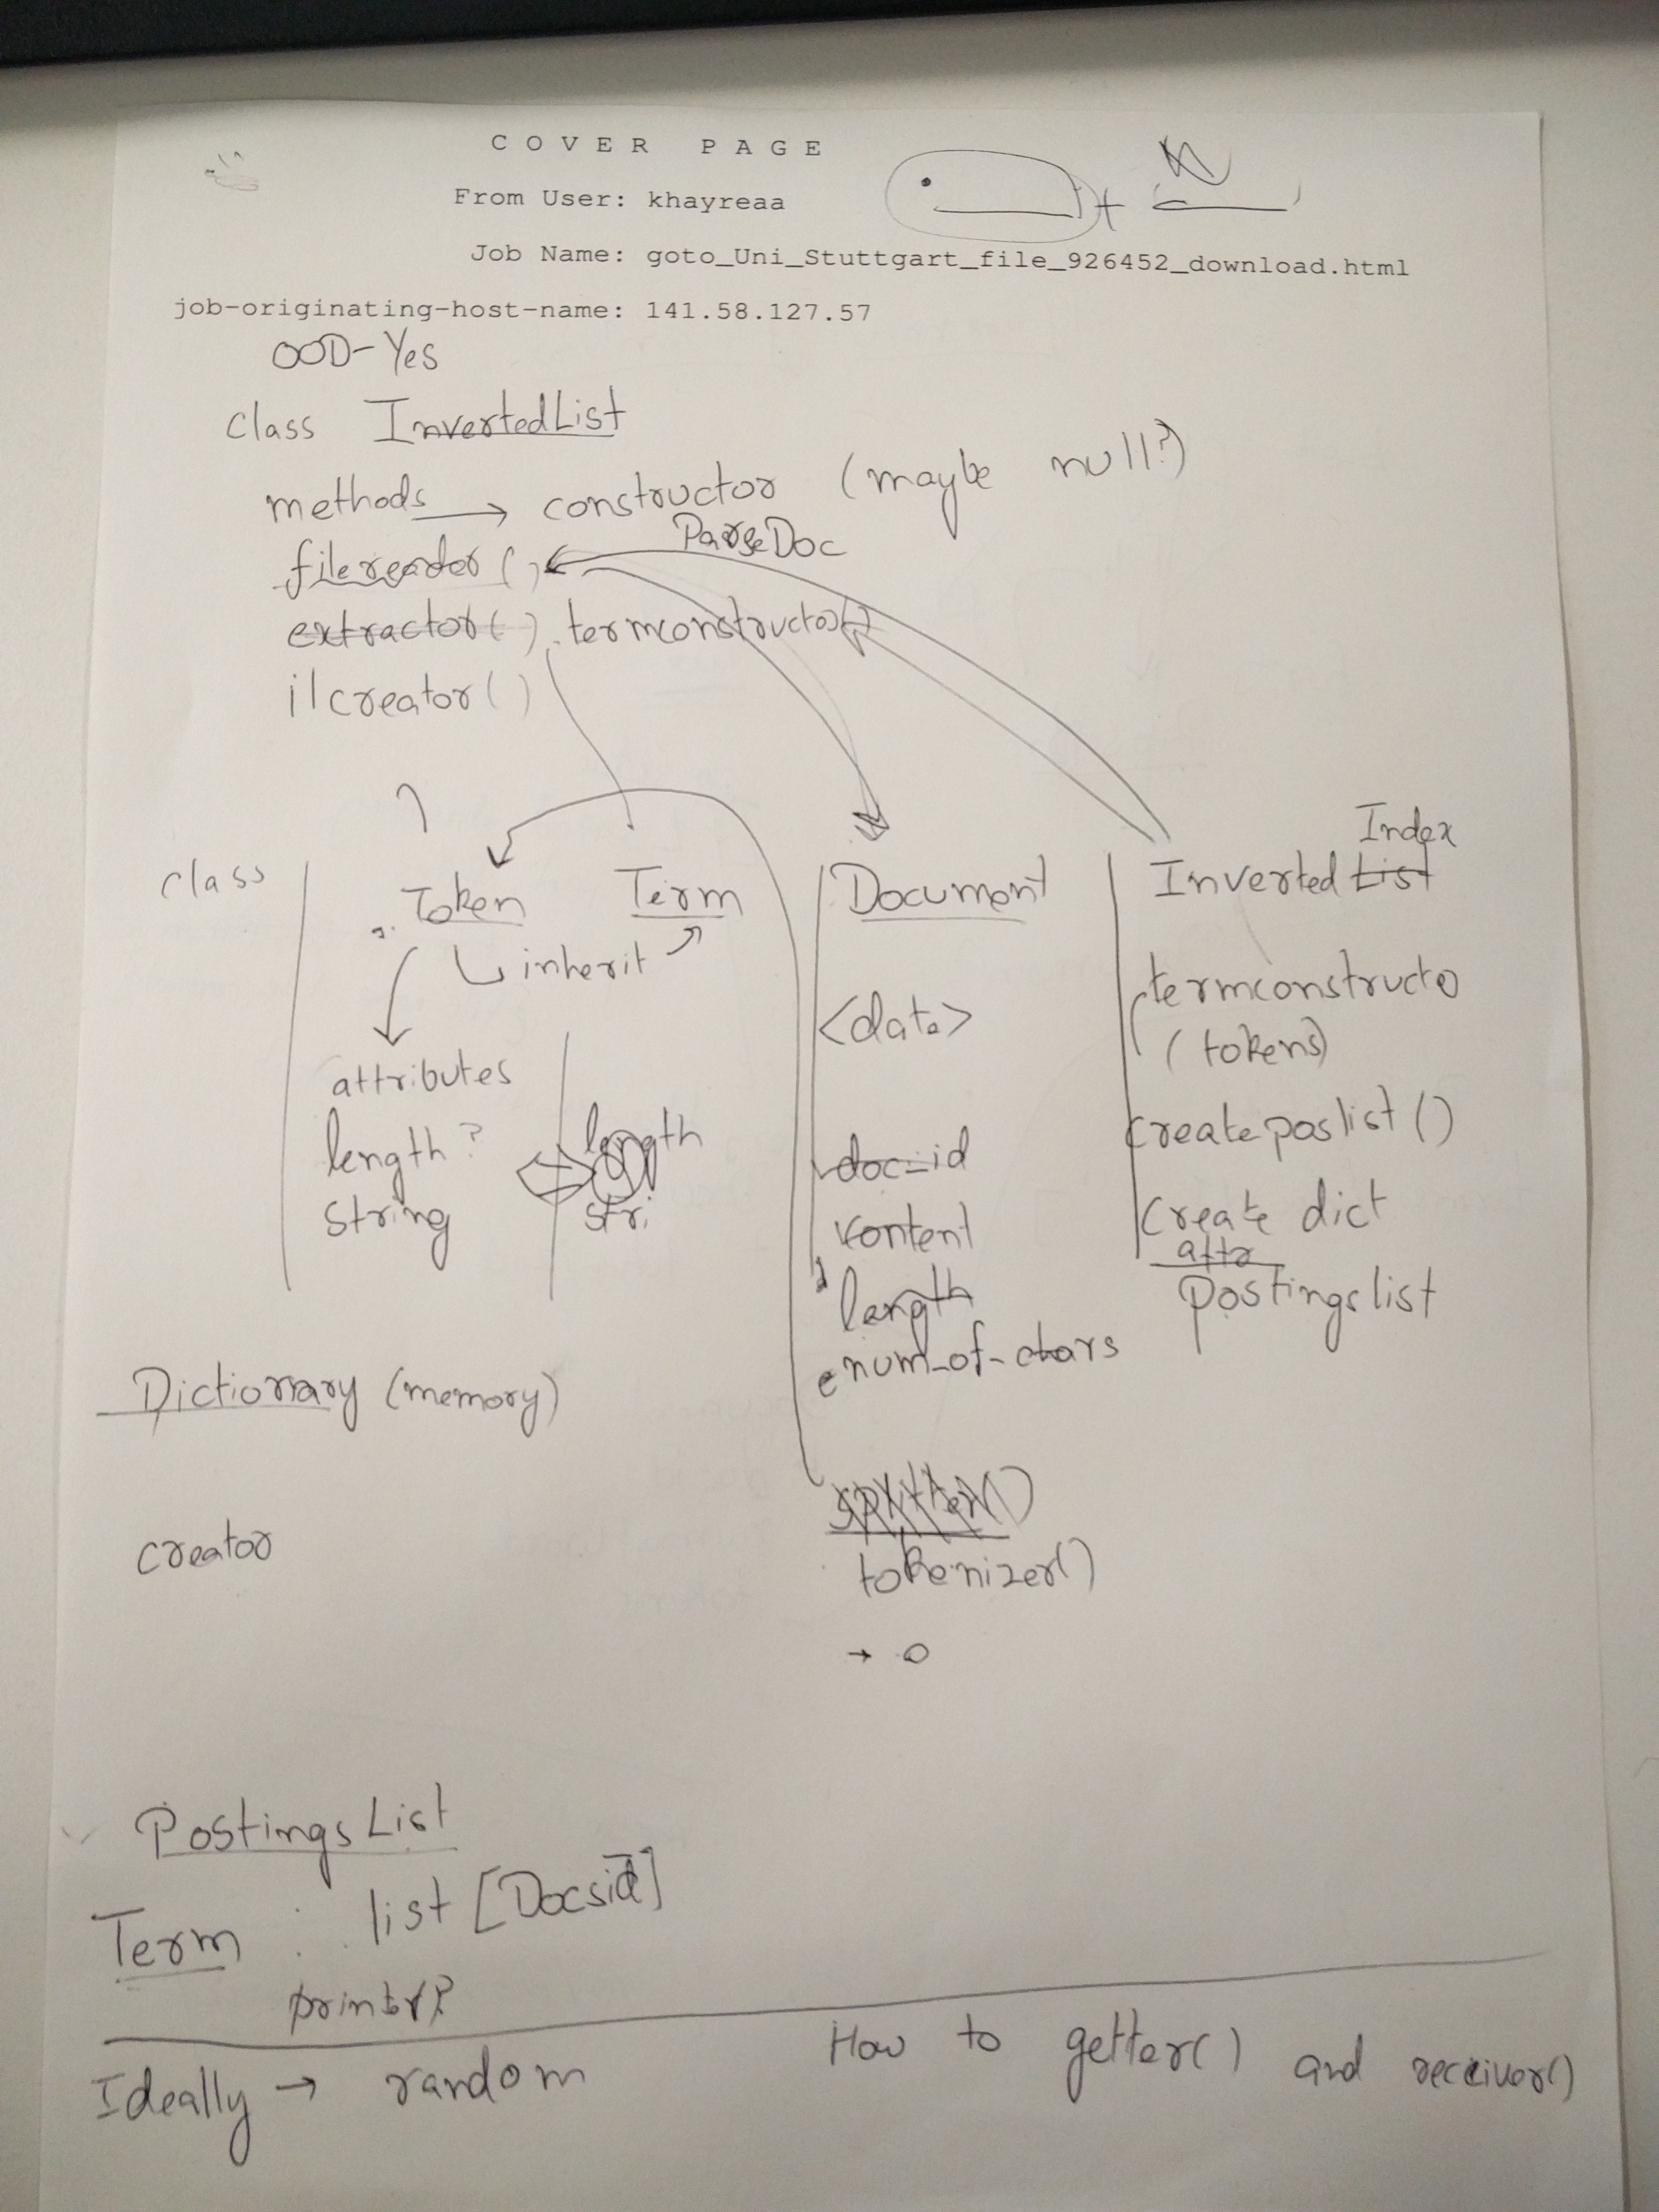 C O V E R   P A G E
From User: khayreaa
Job Name: goto_Uni_Stuttgart_file_926452_download.html
job-originating-host-name: 141.58.127.57
OOD-Yes
class InvertedList
methods → constructor (maybe null?)
ParseDoc
filereader()
extractor() termconstructor()
ilcreator()
class
Token
Term
inherit
attributes
length?
string
length
stri
Document
<date>
doc-id
content
length
num-of-chars
tokenizer()
Index
Inverted List
termconstructo
(tokens)
createposlist()
create dict
attr
Postingslist
Dictionary (memory)
creator
PostingsList
Term : list [Docsid]
Ideally → random
How to getter() and receiver()